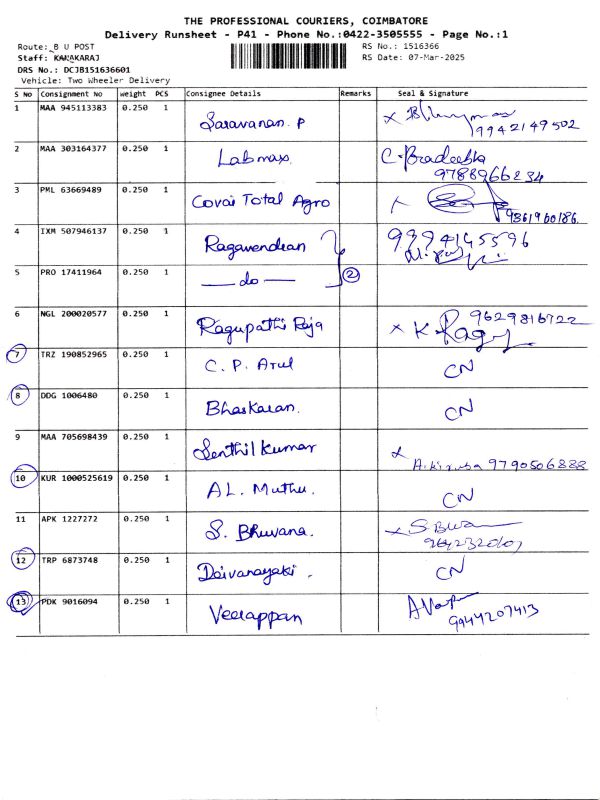 THE PROFESSIONAL COURIERS, COIMBATORE
Delivery Runsheet - P41 - Phone No.:0422-3505555 - Page No.:1
Route: B U POST RS No.: 1516366
Staff: KANAKARAJ RS Date: 07-Mar-2025
DRS No.: DCJB151636601
Vehicle: Two Wheeler Delivery
S No Consignment No weight PCS Consignee Details Remarks Seal & Signature
1 MAA 945113383 0.250 1 Saravanan. P
9942149502
2 MAA 303164377 0.250 1 Labmax. C. Pradeebha
9788966234
3 PML 63669489 0.250 1 Covai Total Agro
9361960186.
4 IXM 507946137 0.250 1 Ragavendran 9394145596
5 PRO 17411964 0.250 1 — do — 2
6 NGL 200020577 0.250 1 Ragupathi Raja x K. 9629816722
7 TRZ 190852965 0.250 1 C. P. Arul CN
8 DDG 1006480 0.250 1 Bhaskaran. CN
9 MAA 705698439 0.250 1 Senthil Kumar x
9790506888
10 KUR 1000525619 0.250 1 AL. Muthu. CN
11 APK 1227272 0.250 1 S. Bhuvana. x S.
12 TRP 6873748 0.250 1 Deivanayaki. CN
13 PDK 9016094 0.250 1 Veerappan
9944207413